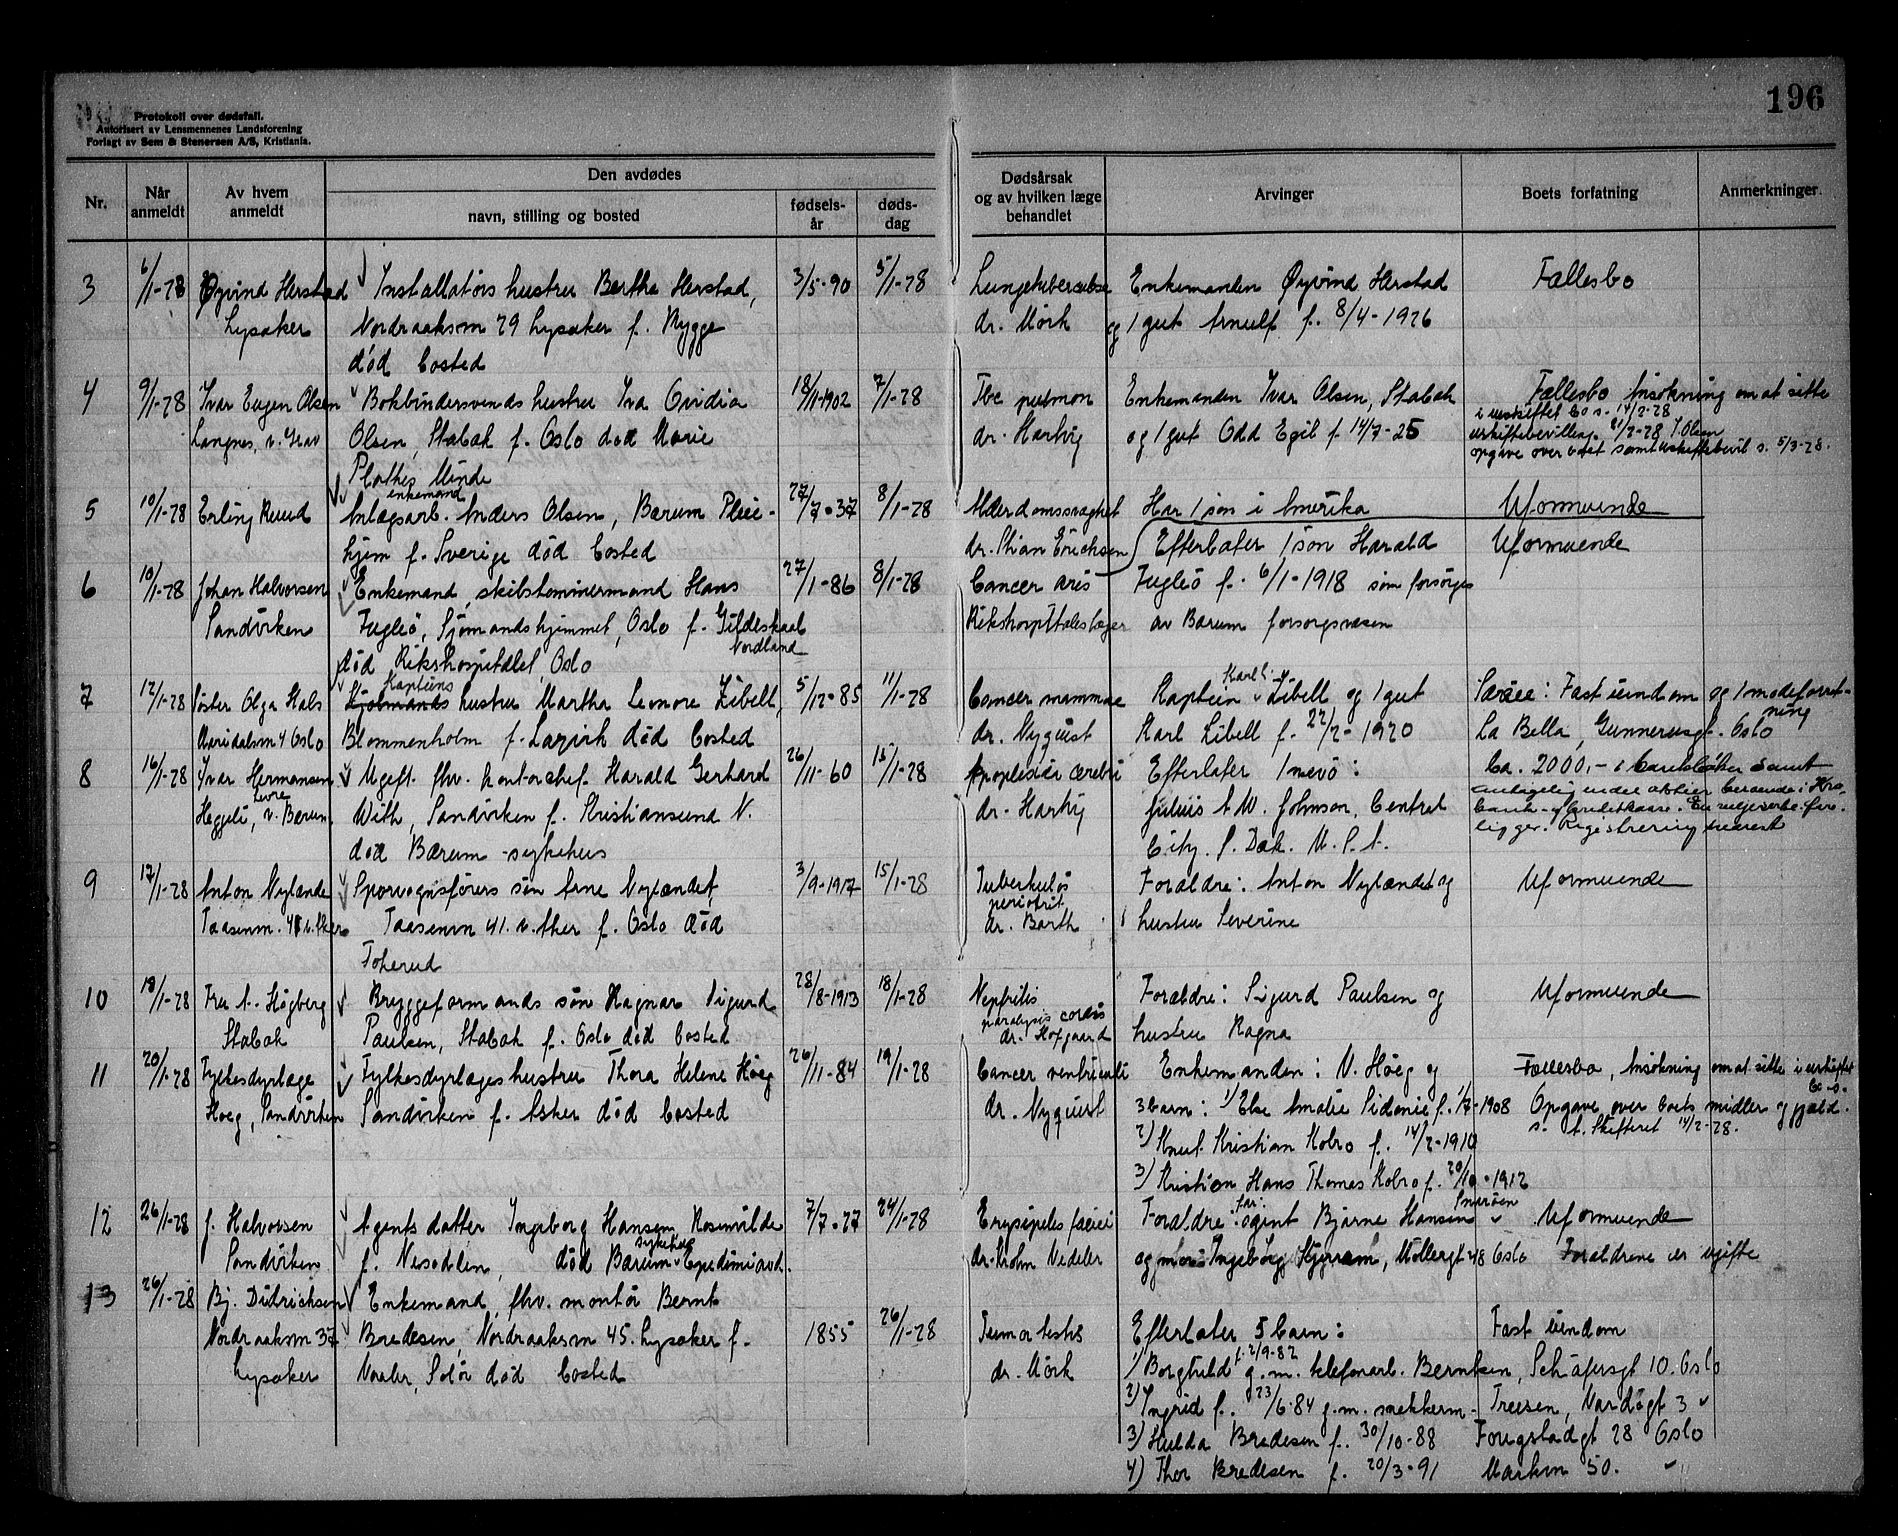 196
Protokoll over dødsfall.
Autorisert av Lensmennenes Landsforening
Forlagt av Sem & Stenersen A/S, Kristiania.
Nr.
Når anmeldt
Av hvem anmeldt
Den avdødes
navn, stilling og bosted
fødsels-år
døds-dag
Dødsårsak og av hvilken læge behandlet
Arvinger
Boets forfatning
Anmerkninger
3 6/1-28 Øyvind Herstad Installatörs hustru Bertha Herstad, 3/5-90 5/1-28 Lungetuberculose Enkemanden Øyvind Herstad Fællesbo
Lysaker Nordraaksvn 29 Lysaker f. Rygge dr. Mörk og 1 gut Arnulf f. 8/4-1926
död bosted
4 9/1-28 Ivar Eugen Olsen Bokbindersvends hustru Iva Ovidia 18/11-1902 7/1-28 Tbc pulmon Enkemanden Ivar Olsen, Stabæk Fællesbo Ansøkning om at sitte
i uskiftet bo s. 14/2-28
Langnes, v. Grav Olsen, Stabæk f. Oslo död Marie dr. Hartvig og 1 gut Odd Egil f. 14/7-25 uskiftebevilling. 21/2-28 I. Olsen
opgave over boet samt uskiftebevil s. 5/3-28.
Plathes Minde
enkemand
5 10/1-28 Erling Ruud Anlægsarb. Anders Olsen, Bærum Pleie- 27/7-37 8/1-28 Alderdomssvaghet Har 1 sön i Amerika Uformuende
hjem f. Sverige död bosted dr. Stian Erichsen Efterlater 1 sön Harald Uformuende
6 10/1-28 Johan Halvorsen Enkemand, skibstömmermand Hans 27/1-86 8/1-28 Cancer Fugleö f. 6/1-1918 som forsörges
Sandviken Fugleö, Sjömandshjemmet, Oslo f. Gildeskaal Rikshospitalets læger av Bærum forsorgsvæsen
Nordland
död Rikshospitalet, Oslo
Kapteins Karl
7 12/1-28 Söster Olga Hals hustru Martha Leonore Zibell, 5/12-85 11/1-28 Cancer mammae Kaptein Zibell og 1 gut Særeie: Fast eiendom og 1 modeforret-
ning
Maridalsvn 4 Oslo Blommenholm f. Larvik död bosted dr. Nyquist Karl Zibell f. 22/2-1920 La Bella, Gunnerusgt. Oslo
8 16/1-28 Ivar Hermansen Ugift fhv. kontorchef Harald Gerhard 26/11-60 15/1-28 Apoplexia cerebri Efterlater 1 nevö: Ca. 2000,- i bankböker samt
Heggeli, v. Bærum. With, Sandviken f. Kristiansund N. dr. Hartvig Julius A. W. Johnson, Central
död Bærum sykehus City. S. Dak. U. S. A. ligger. Registrering
9 17/1-28 Anton Nylænde Sporvognsförers sön Arne Nylændet, 3/9-1917 15/1-28 Tuberkulös Forældre: Anton Nylændet og Uformuende
Taasenvn. 41 v. Aker Taasenvn 41. v. Aker f. Oslo död dr. Barth hustru Severine
Tokerud
10 18/1-28 Fru A. Högberg Bryggeformands sön Ragnar Sigurd 28/8-1913 18/1-28 Nefritis Forældre: Sigurd Paulsen og Uformuende
paralysis cordis
Stabæk Paulsen, Stabæk f. Oslo död bosted dr. Hofgaard hustru Ragna
11 20/1-28 Fylkesdyrlæge Fylkesdyrlægeshustru Thora Helene Höeg 26/11-84 19/1-28 Cancer ventriculi Enkemanden: N. Höeg og Fællesbo, Ansökning om at sitte i uskiftet
bo s.
Höeg, Sandviken Sandviken f. Asker död bosted dr. Nyquist 3 barn: 1) Else Amalie Sidonie f. 1/7-1908 Opgave over boets midler og gjæld.
s. t. Skifteret 14/2-28.
2) Knut Kristian Kobro f. 14/2-1910
3) Kristian Hans Thomas Kobro f. 20/10-1912
12 26/1-28 J. Halvorsen Agents datter Ingeborg Hansen Rosenvilde 7/7-27 24/1-28 Erysipelas faciei Forældre: far: agent Bjarne Hansen Snaröen Uformuende
Sandviken f. Nesodden, död Bærum sykehus Epedimiavd. dr. Krohn Vedeler og mor: Ingeborg, Möllergt 48 Oslo Forældrene er ugifte
13 26/1-28 Bj. Didrichsen Enkemand, fhv. montör Bernt
Nordraaksvn 37 Bredesen, Nordraaksvn 45. Lysaker f. 1855 26/1-28 Tumor testis Efterlater 5 barn: Fast eiendom
Lysaker Vaaler, Solör död bosted dr. Mörk 1) Borghild f. 2/9-82 g.m. telefonarb. Berntsen, Schäfersgt 10. Oslo
2) Ingrid f. 23/6-84 g.m. snekkerm. 3
3) Hulda Bredesen f. 30/10-88 28 Oslo
4) Thor Bredesen f. 20/3-91 Markvn 50.